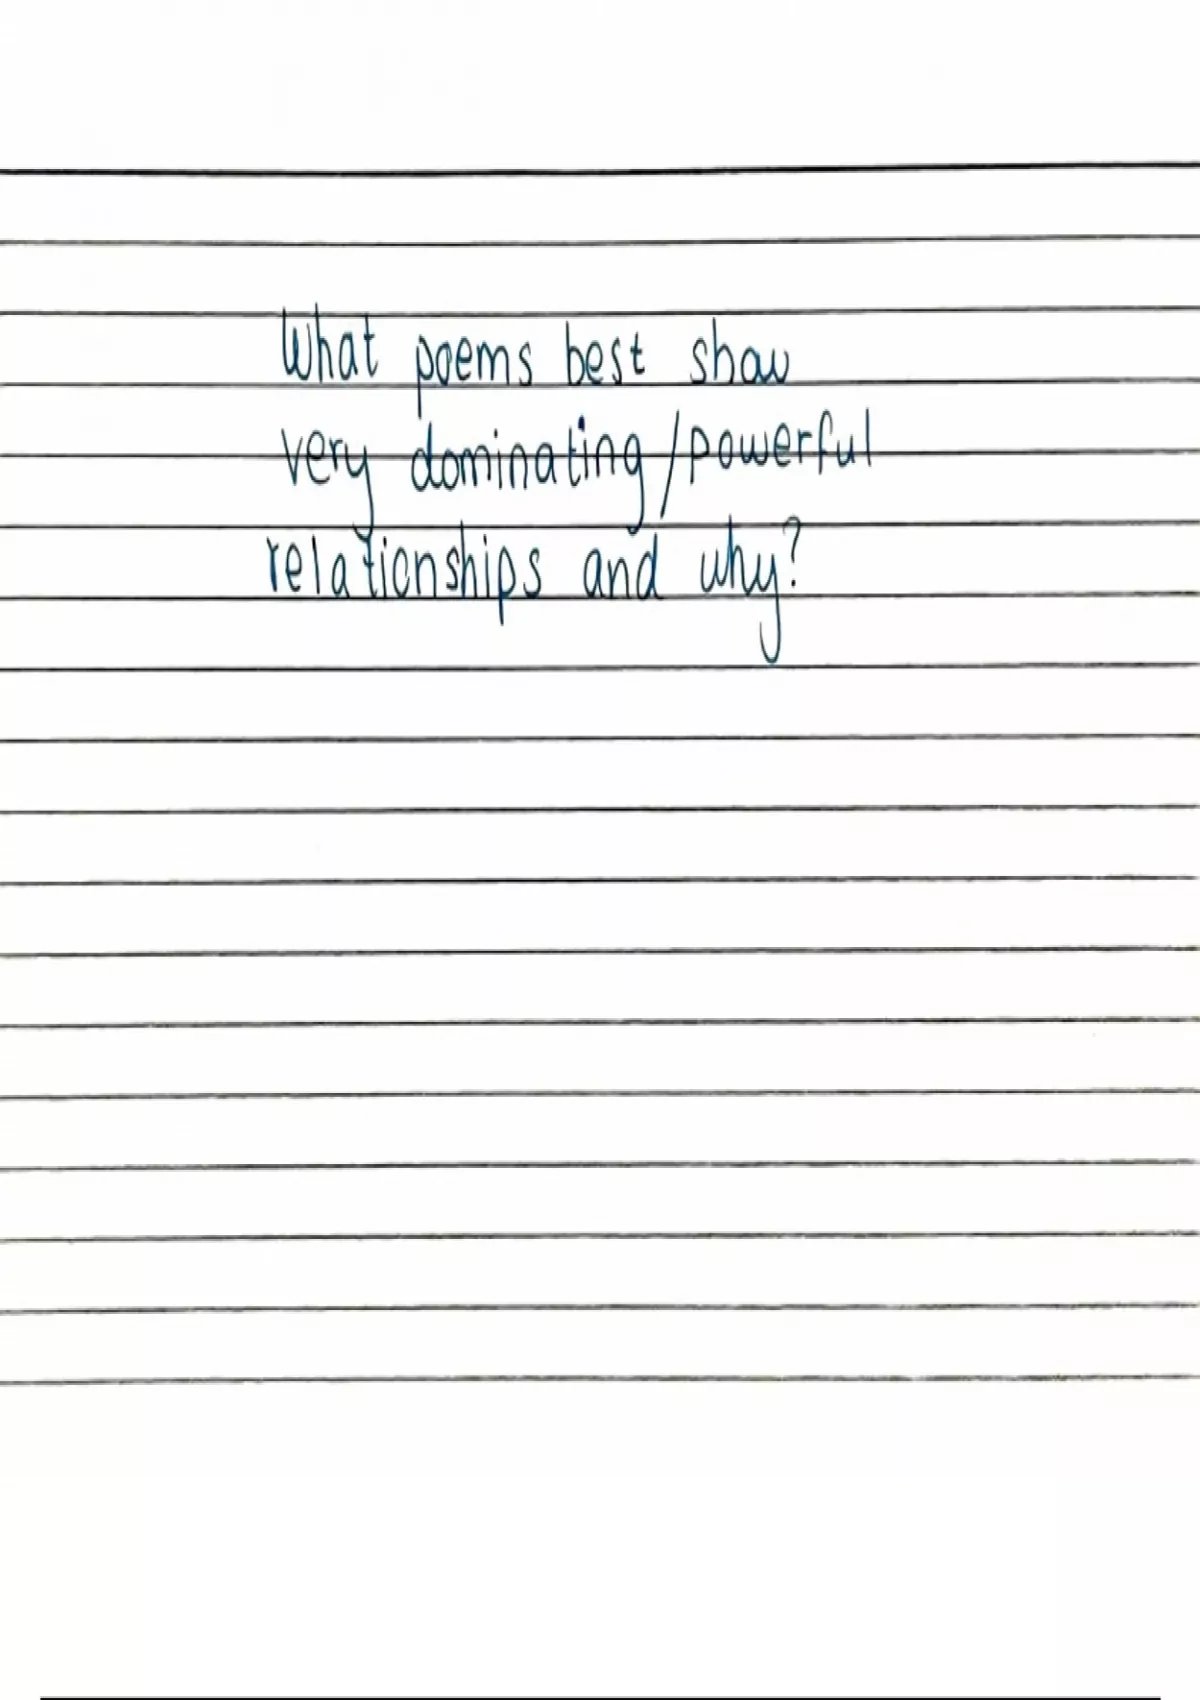 What poems best show
very dominating/powerful
relationships and why?